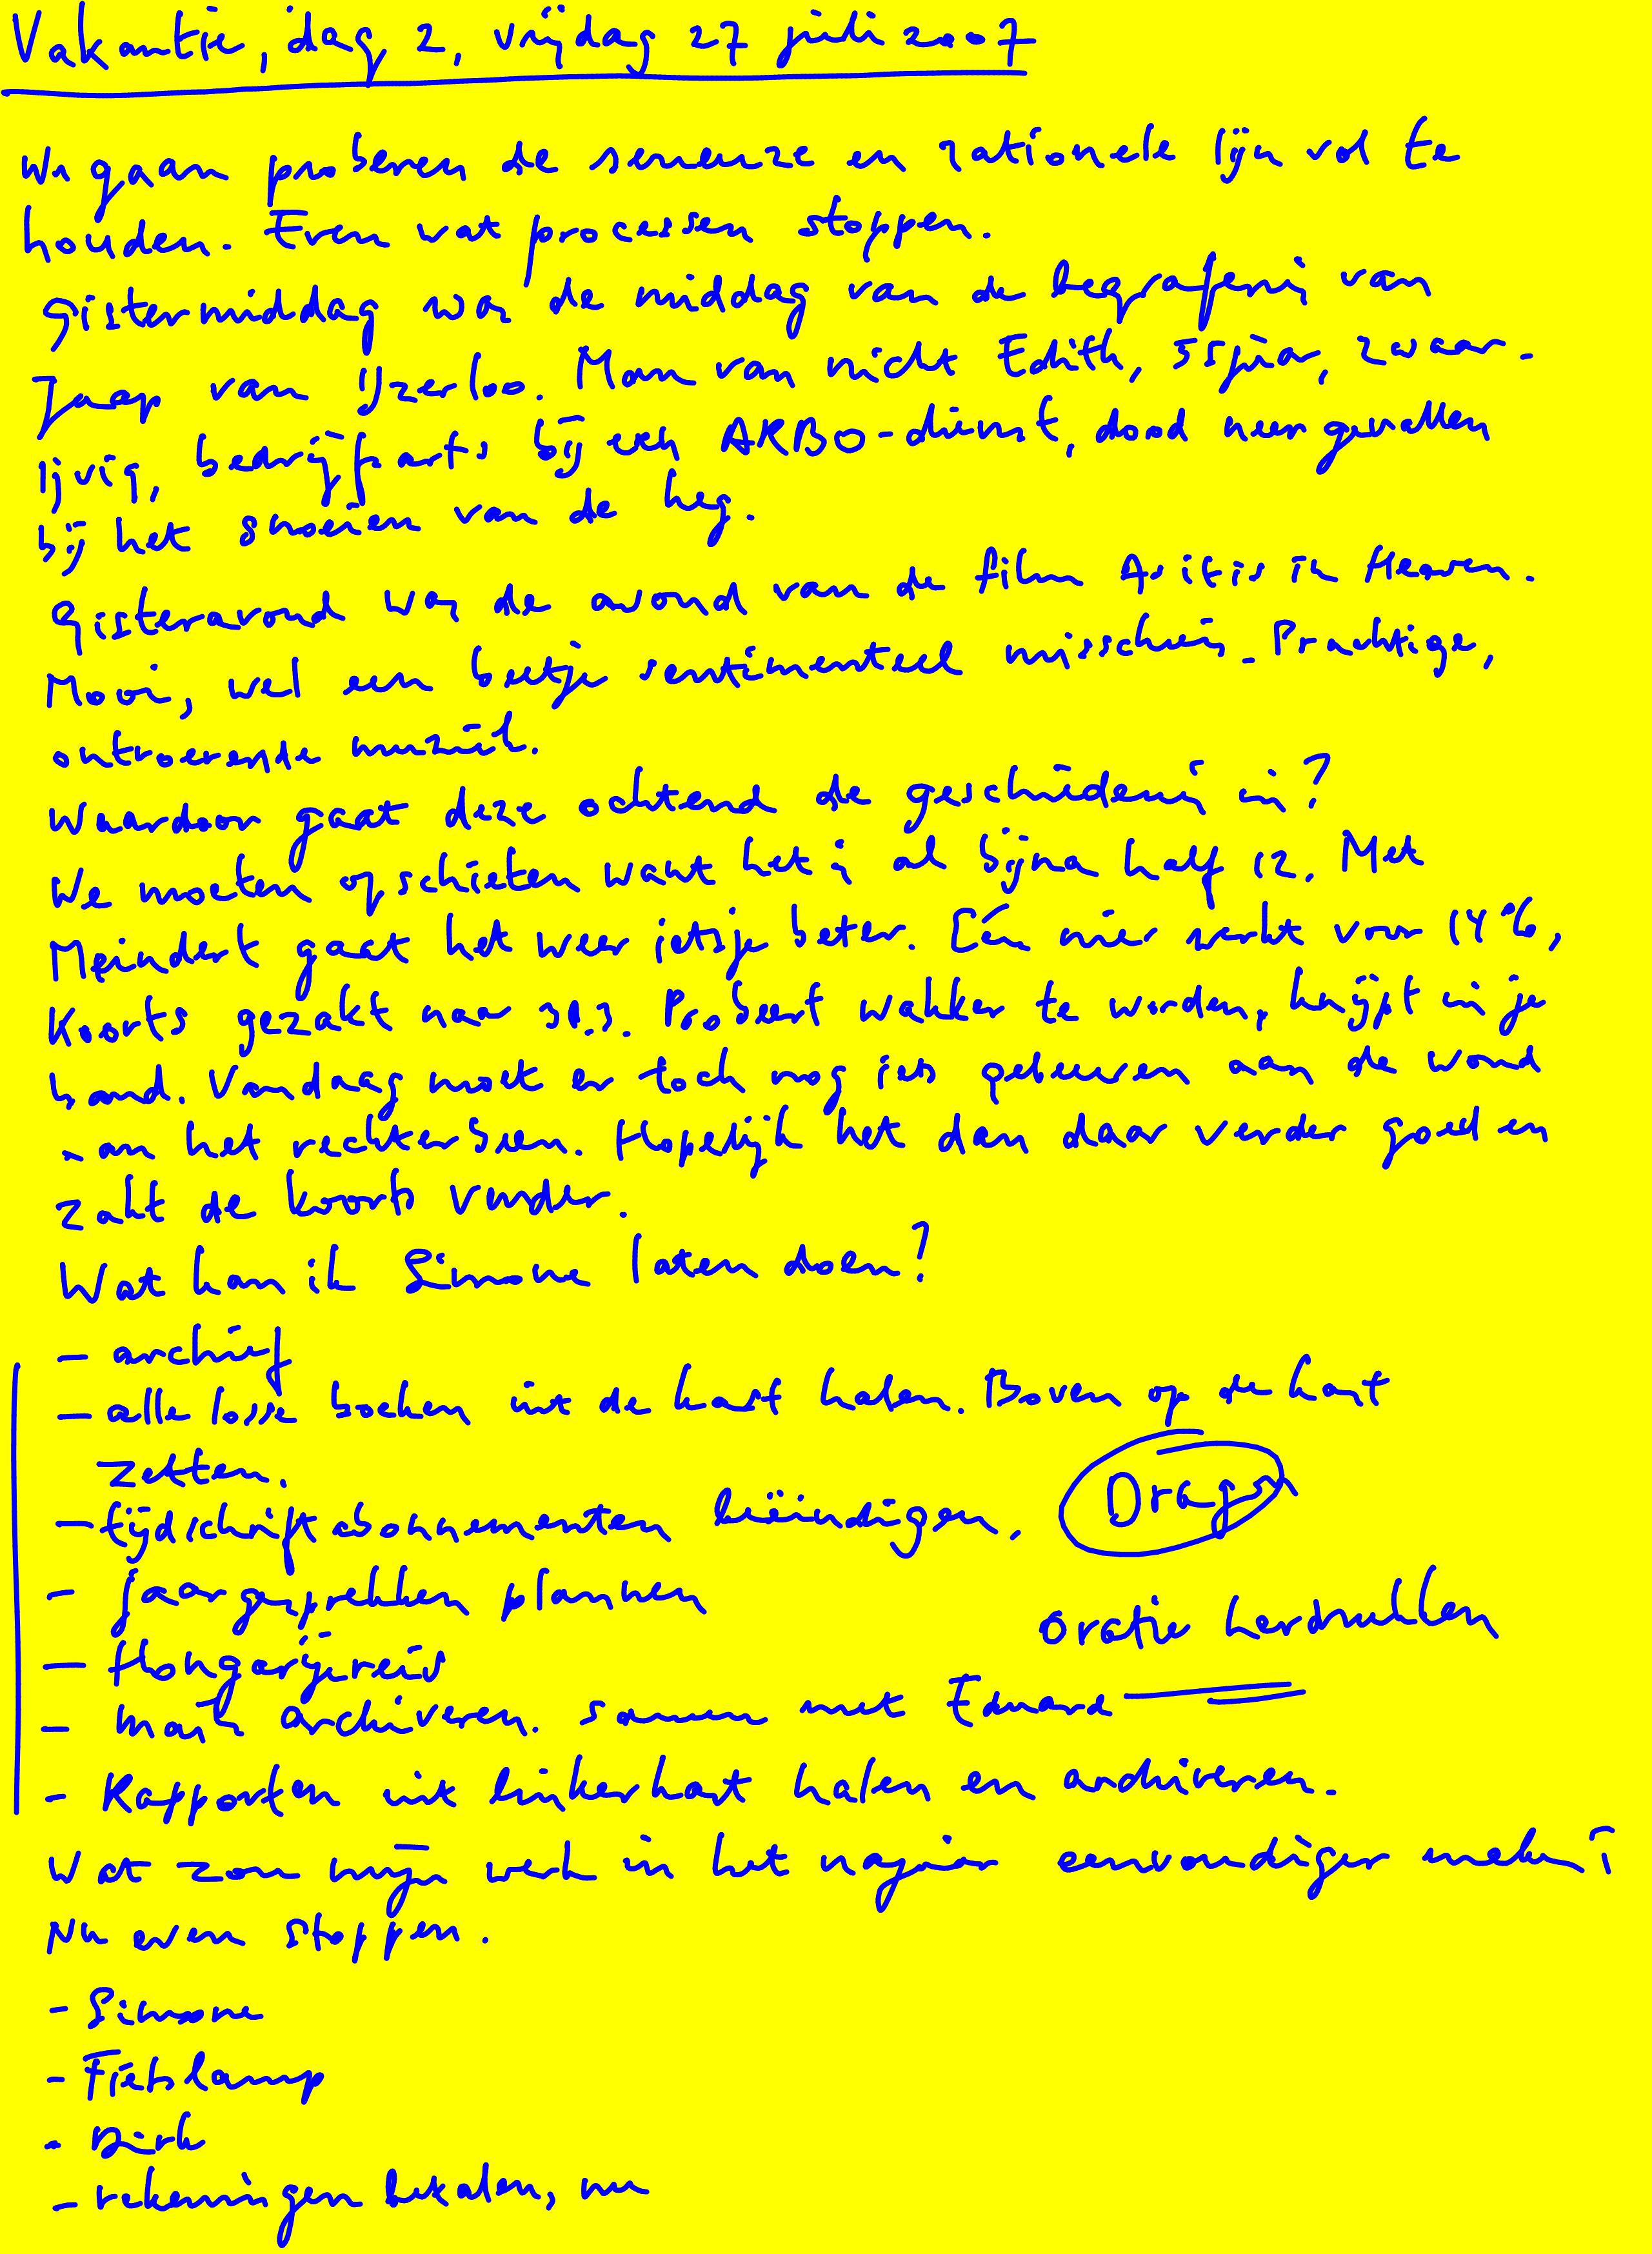 Vakantie, dag 2, vrijdag 27 juli 2007
We gaan proberen de serieuze en rationele lijn vol te
houden. Even wat processen stoppen.
Gistermiddag was de middag van de begrafenis van
Jaap van IJzerloo. Man van nicht Edith, 55 jaar, zwaar-
lijvig, bedrijfsarts bij een ARBO-dienst, dood neergevallen
bij het snoeien van de heg.
Gisteravond was de avond van de film As it is in Heaven.
Mooi, wel een beetje sentimenteel misschien. Prachtige,
ontroerende muziek.
Waardoor gaat deze ochtend de geschiedenis in?
We moeten opschieten want het is al bijna half 12. Met
Meindert gaat het weer ietsje beter. Eén nier werkt voor 14%,
Koorts gezakt naar 38.3. Probeert wakker te worden, knijpt in je
hand. Vandaag moet er toch nog iets gebeuren aan de wond
aan het rechterbeen. Hopelijk het dan daar verder goed en
zakt de koorts verder.
Wat kan ik Simone laten doen?
- archief
- alle losse boeken uit de kast halen. Boven op de kast
zetten.
- tijdschriftabonnementen beëindigen. Dragon
- jaargesprekken plannen
oratie herdrukken
- Hongarijereis
- mail archiveren. samen met Eduard
- Rapporten uit linkerkast halen en archiveren.
Wat zou mijn werk in het najaar eenvoudiger maken?
Nu even stoppen.
- Simone
- Fietslamp
- Dirk
- rekeningen betalen, nu